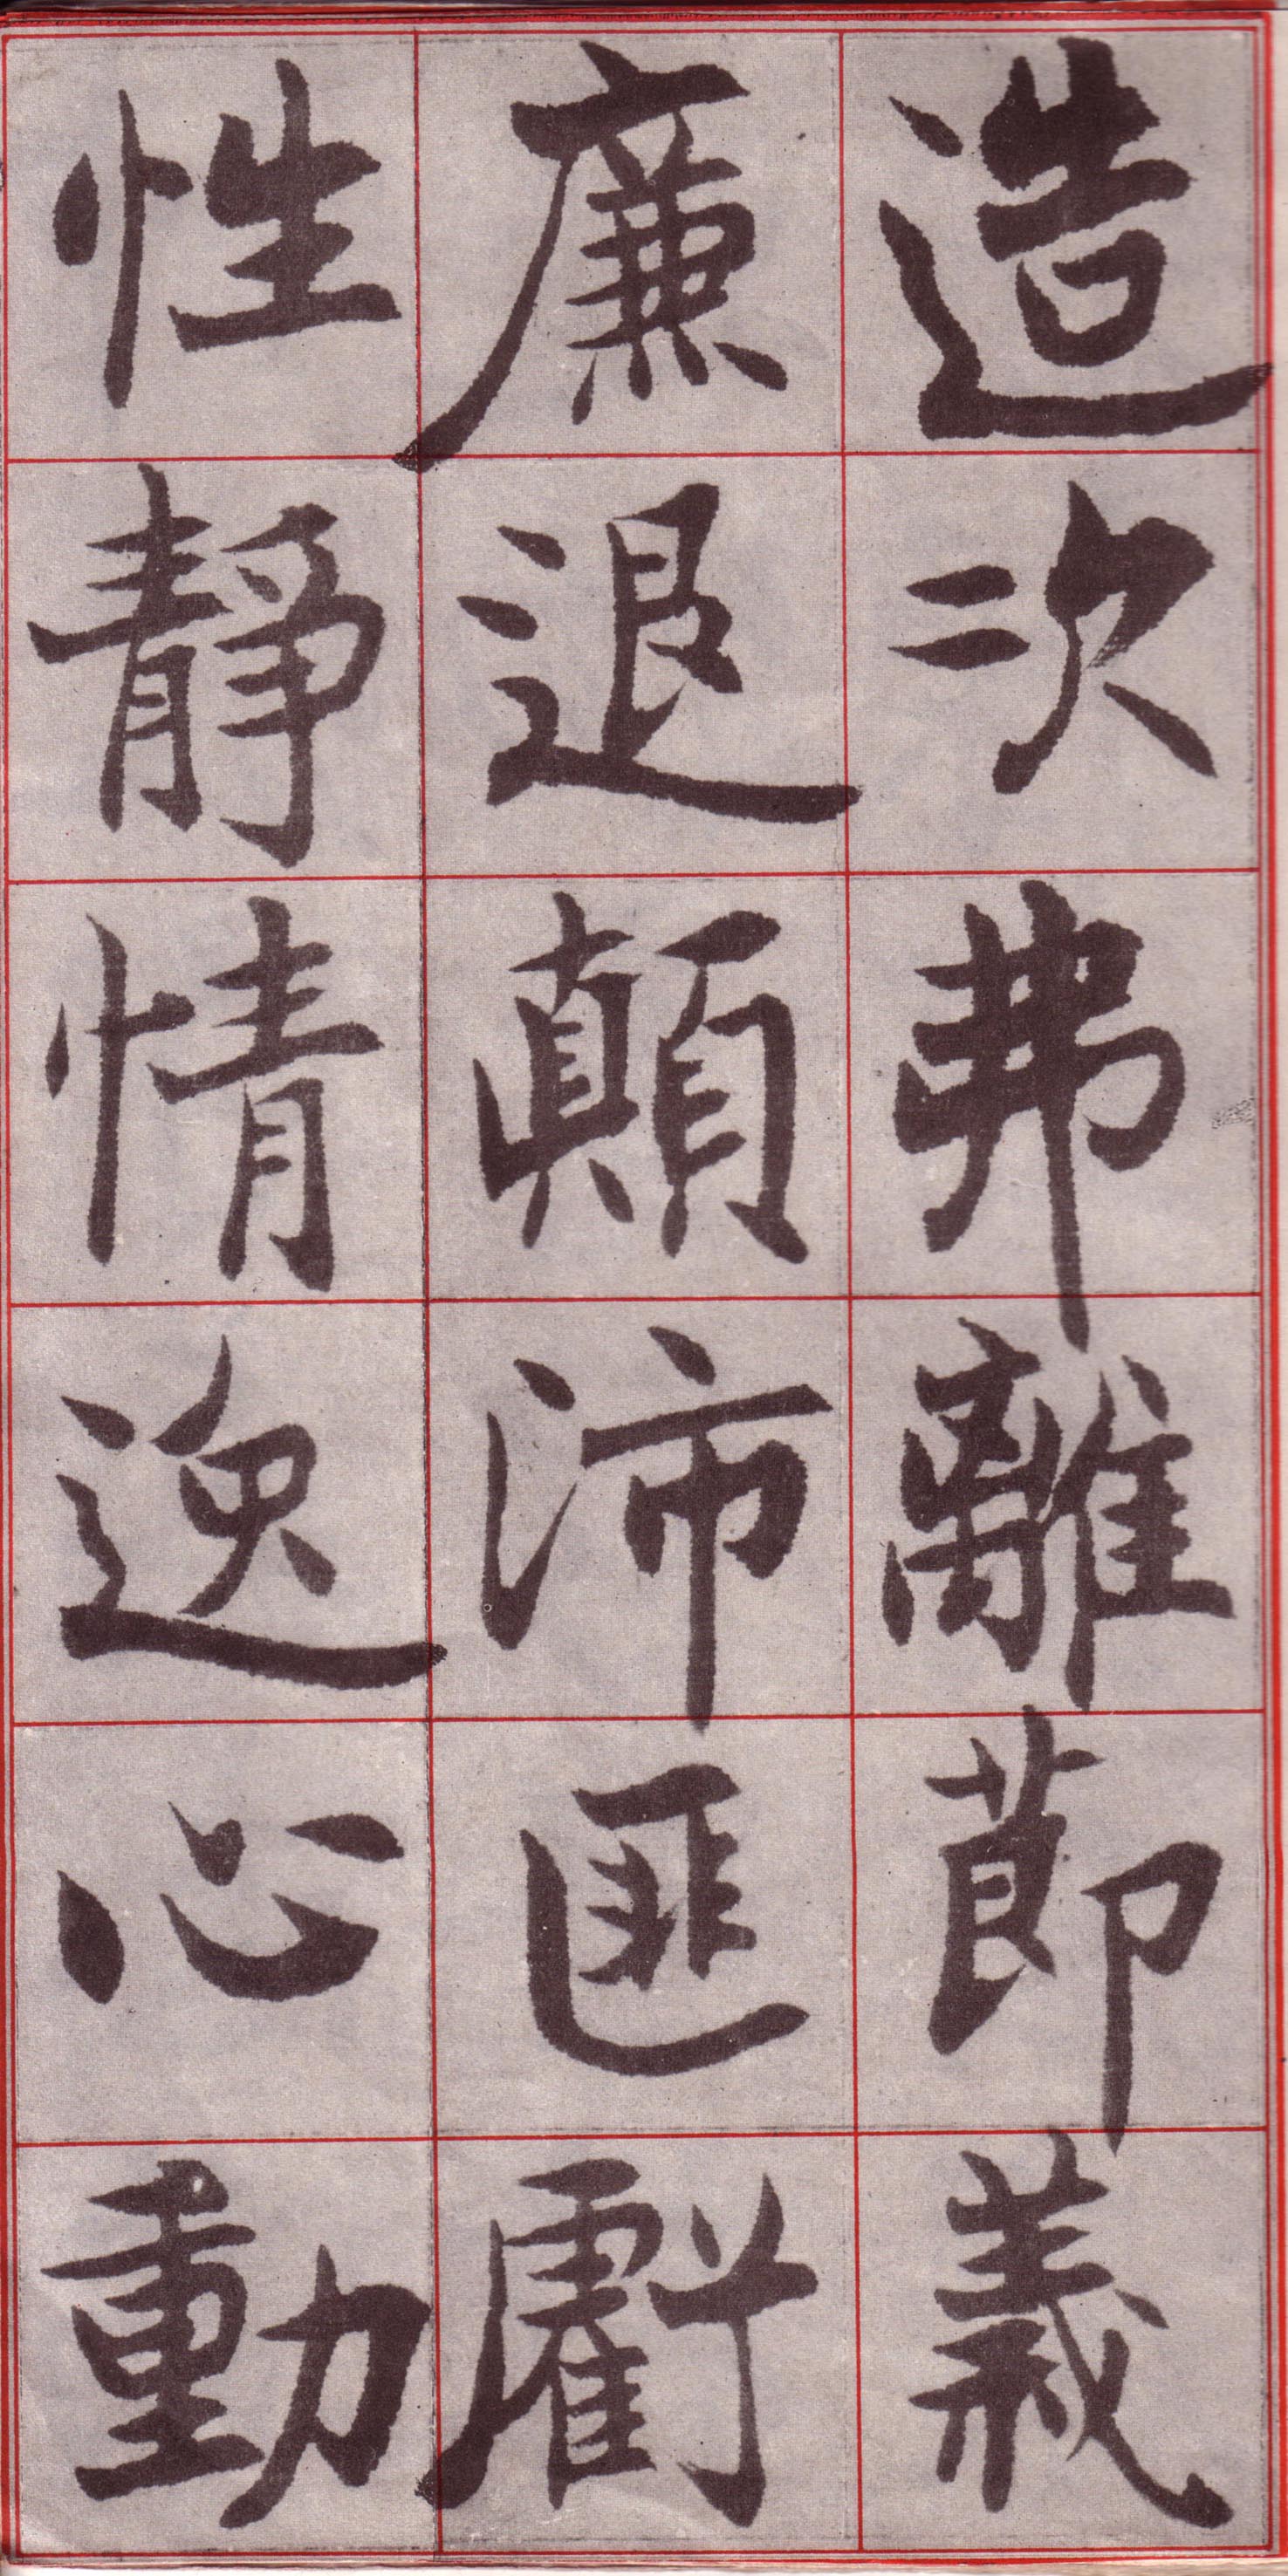 造次弗離節義
廉退顛沛匪虧
性靜情逸心動